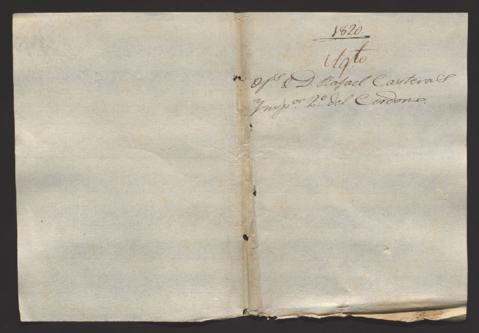 1820
Agto
Ofs. D. Rafael Casteras
Impor. 2o del Cordon.